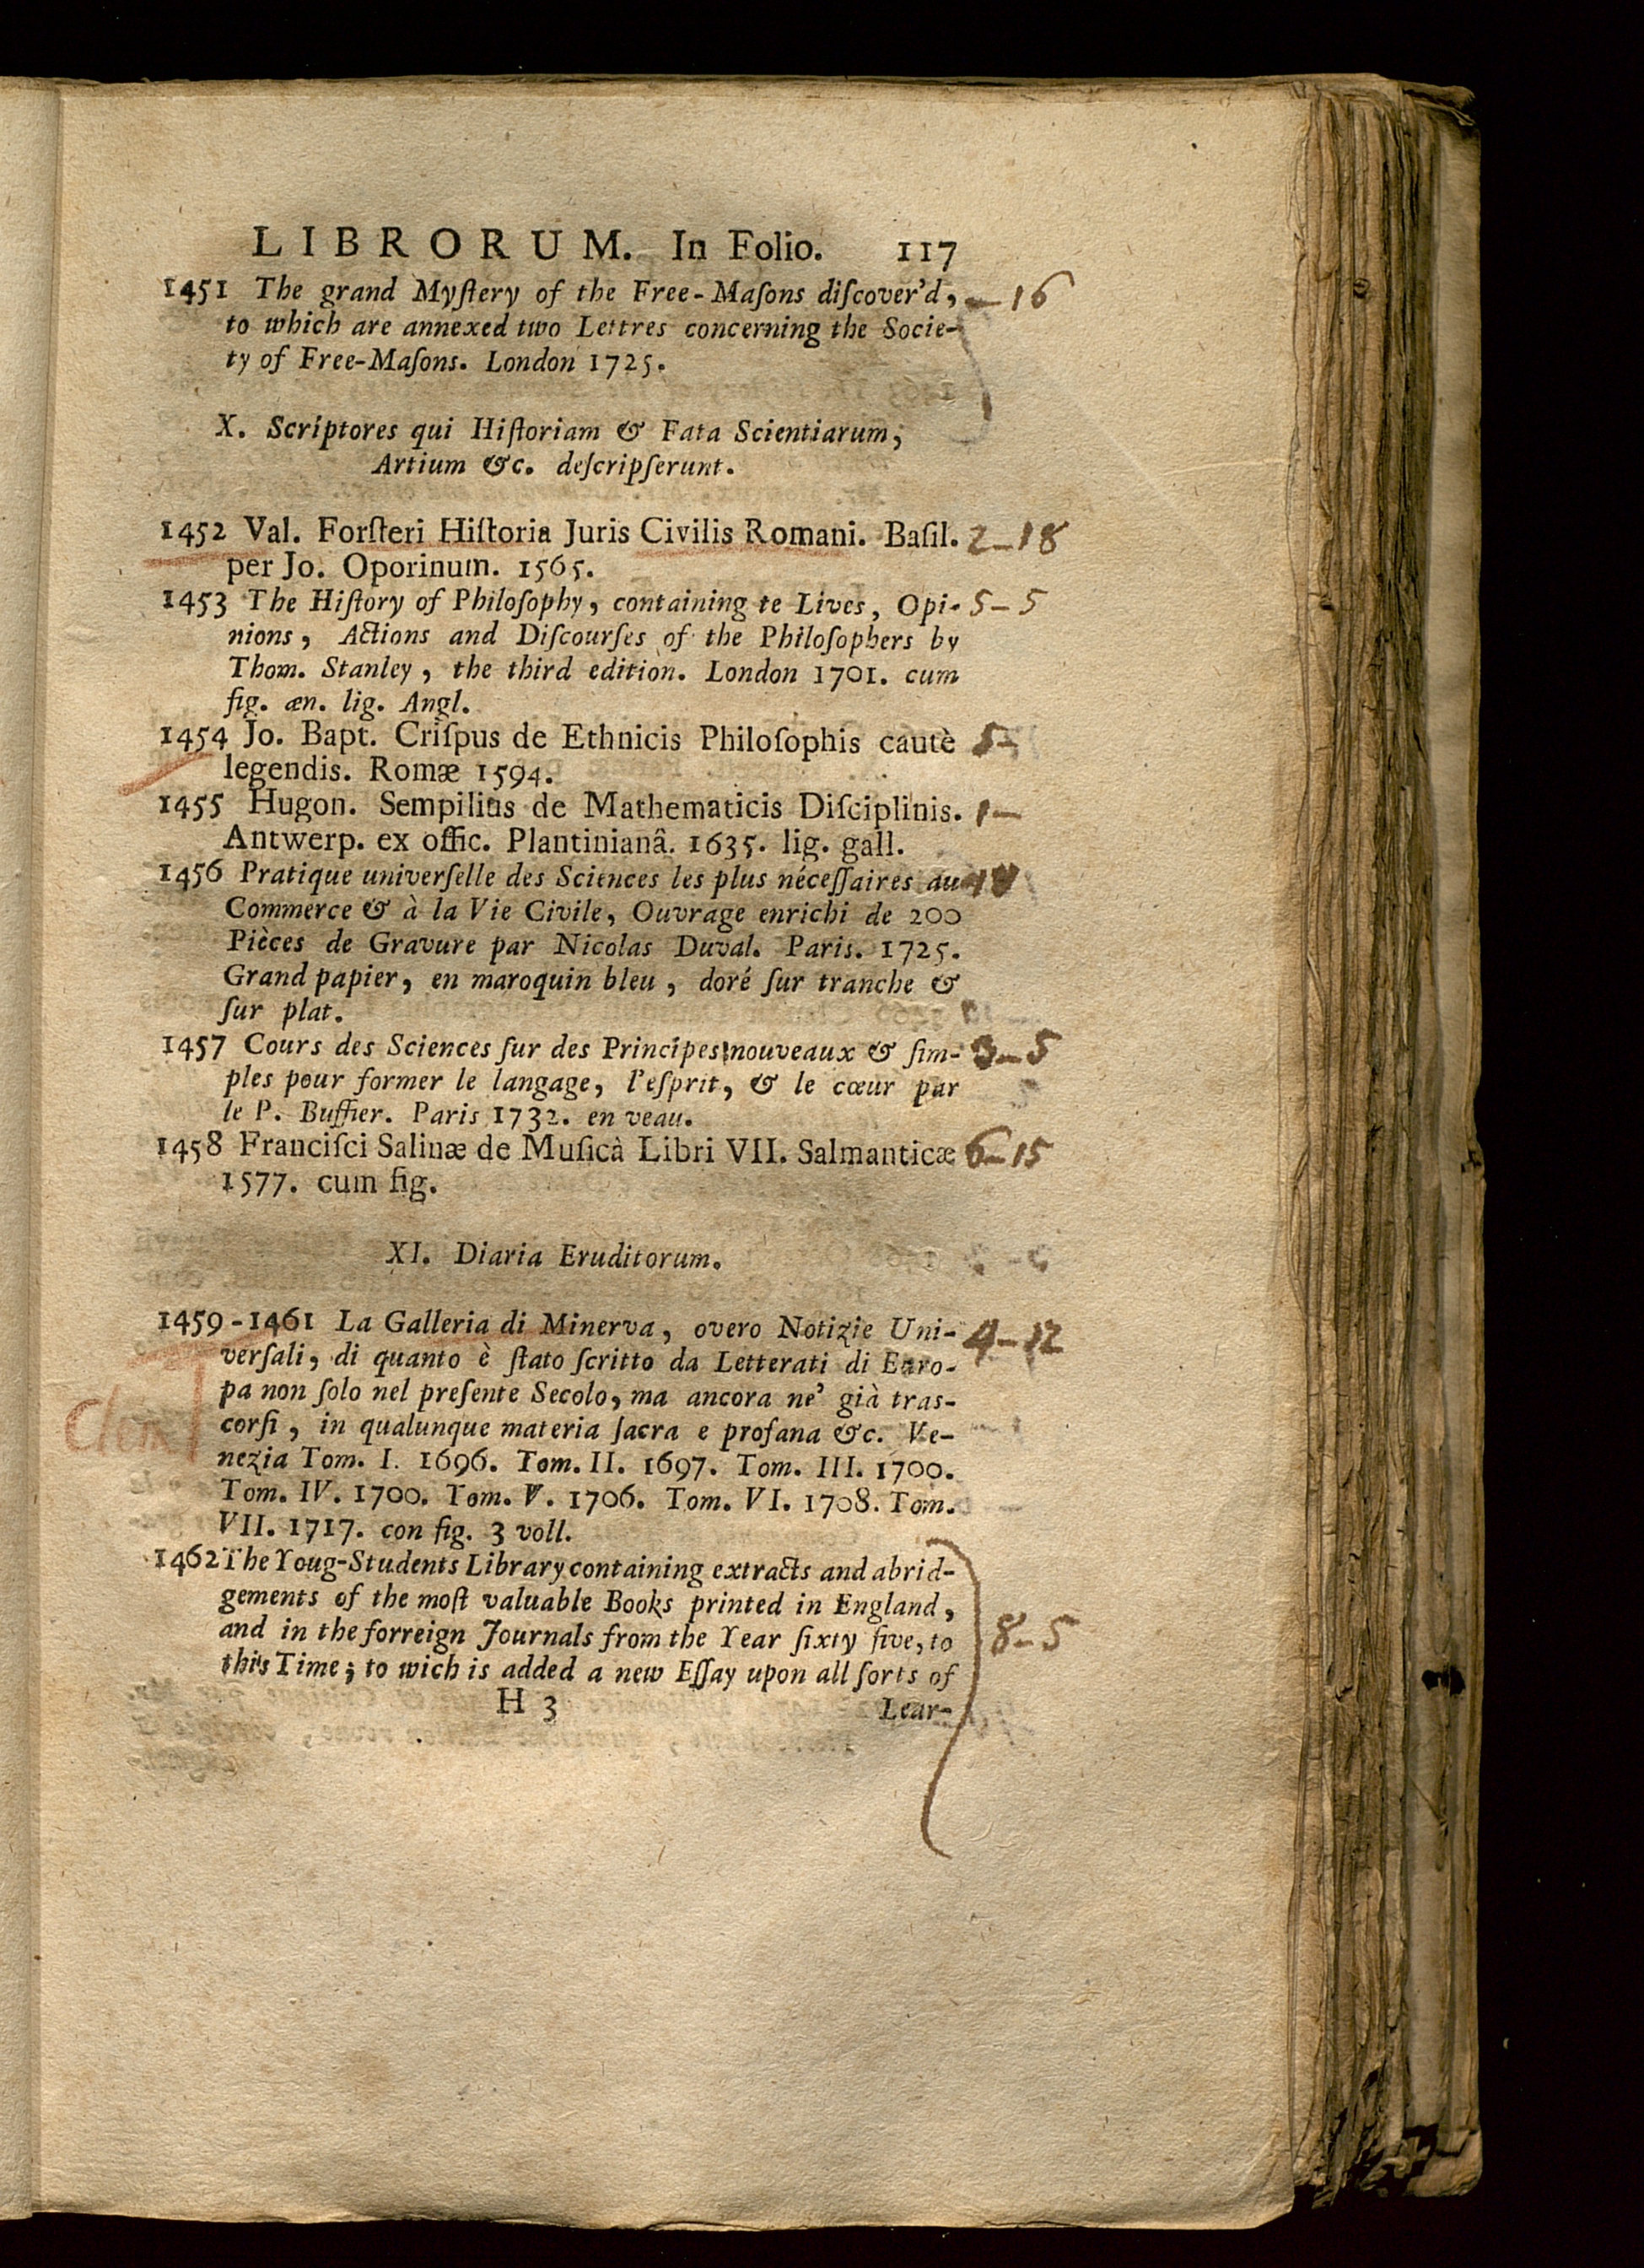 LIBRORUM. In Folio. 117
1451 The grand Myſtery of the Free-Maſons diſcover'd, — 16
to which are annexed two Lettres concerning the Socie-
ty of Free-Maſons. London 1725.
X. Scriptores qui Hiſtoriam & Fata Scientiarum,
Artium &c. deſcripſerunt.
1452 Val. Forſteri Hiſtoria Juris Civilis Romani. Baſil. 2-18
per Jo. Oporinum. 1565.
1453 The Hiſtory of Philoſophy, containing te Lives, Opi- 5-5
nions, Actions and Diſcourſes of the Philoſophers by
Thom. Stanley, the third edition. London 1701. cum
fig. æn. lig. Angl.
1454 Jo. Bapt. Criſpus de Ethnicis Philoſophis cautè 5-
legendis. Romæ 1594.
1455 Hugon. Sempilius de Mathematicis Diſciplinis. 1—
Antwerp. ex offic. Plantinianâ. 1635. lig. gall.
1456 Pratique univerſelle des Sciences les plus néceſſaires au
Commerce & à la Vie Civile, Ouvrage enrichi de 200
Pièces de Gravure par Nicolas Duval. Paris. 1725.
Grand papier, en maroquin bleu, doré ſur tranche &
ſur plat.
1457 Cours des Sciences ſur des Principes nouveaux & ſim- 3-5
ples pour former le langage, l'eſprit, & le cœur par
le P. Buffier. Paris 1732. en veau.
1458 Franciſci Salinæ de Muſicâ Libri VII. Salmanticæ 6-15
1577. cum fig.
XI. Diaria Eruditorum.
1459-1461 La Galleria di Minerva, overo Notizie Uni- 4-12
verſali, di quanto è ſtato ſcritto da Letterati di Euro-
pa non ſolo nel preſente Secolo, ma ancora ne' già tras-
corſi, in qualunque materia ſacra e profana &c. Ve-
nezia Tom. I. 1696. Tom. II. 1697. Tom. III. 1700.
Tom. IV. 1700. Tom. V. 1706. Tom. VI. 1708. Tom.
VII. 1717. con fig. 3 voll.
1462 The Youg-Students Library containing extracts and abrid-
gements of the moſt valuable Books printed in England,
and in the forreign Journals from the Year ſixty five, to 8-5
this Time; to wich is added a new Eſſay upon all ſorts of
H 3 Lear-